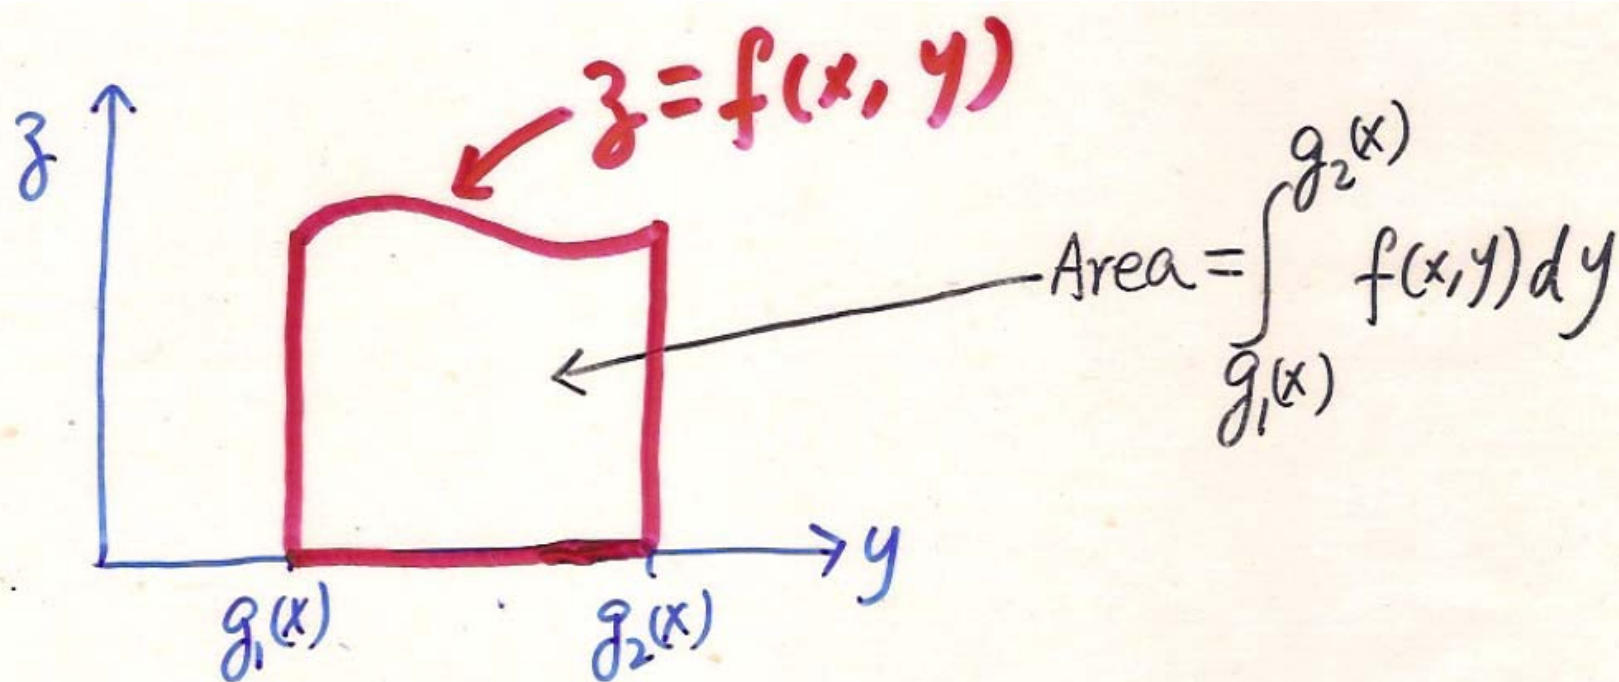 z = f(x, y)
z
Area = ∫_{g₁(x)}^{g₂(x)} f(x,y) dy
y
g₁(x)
g₂(x)